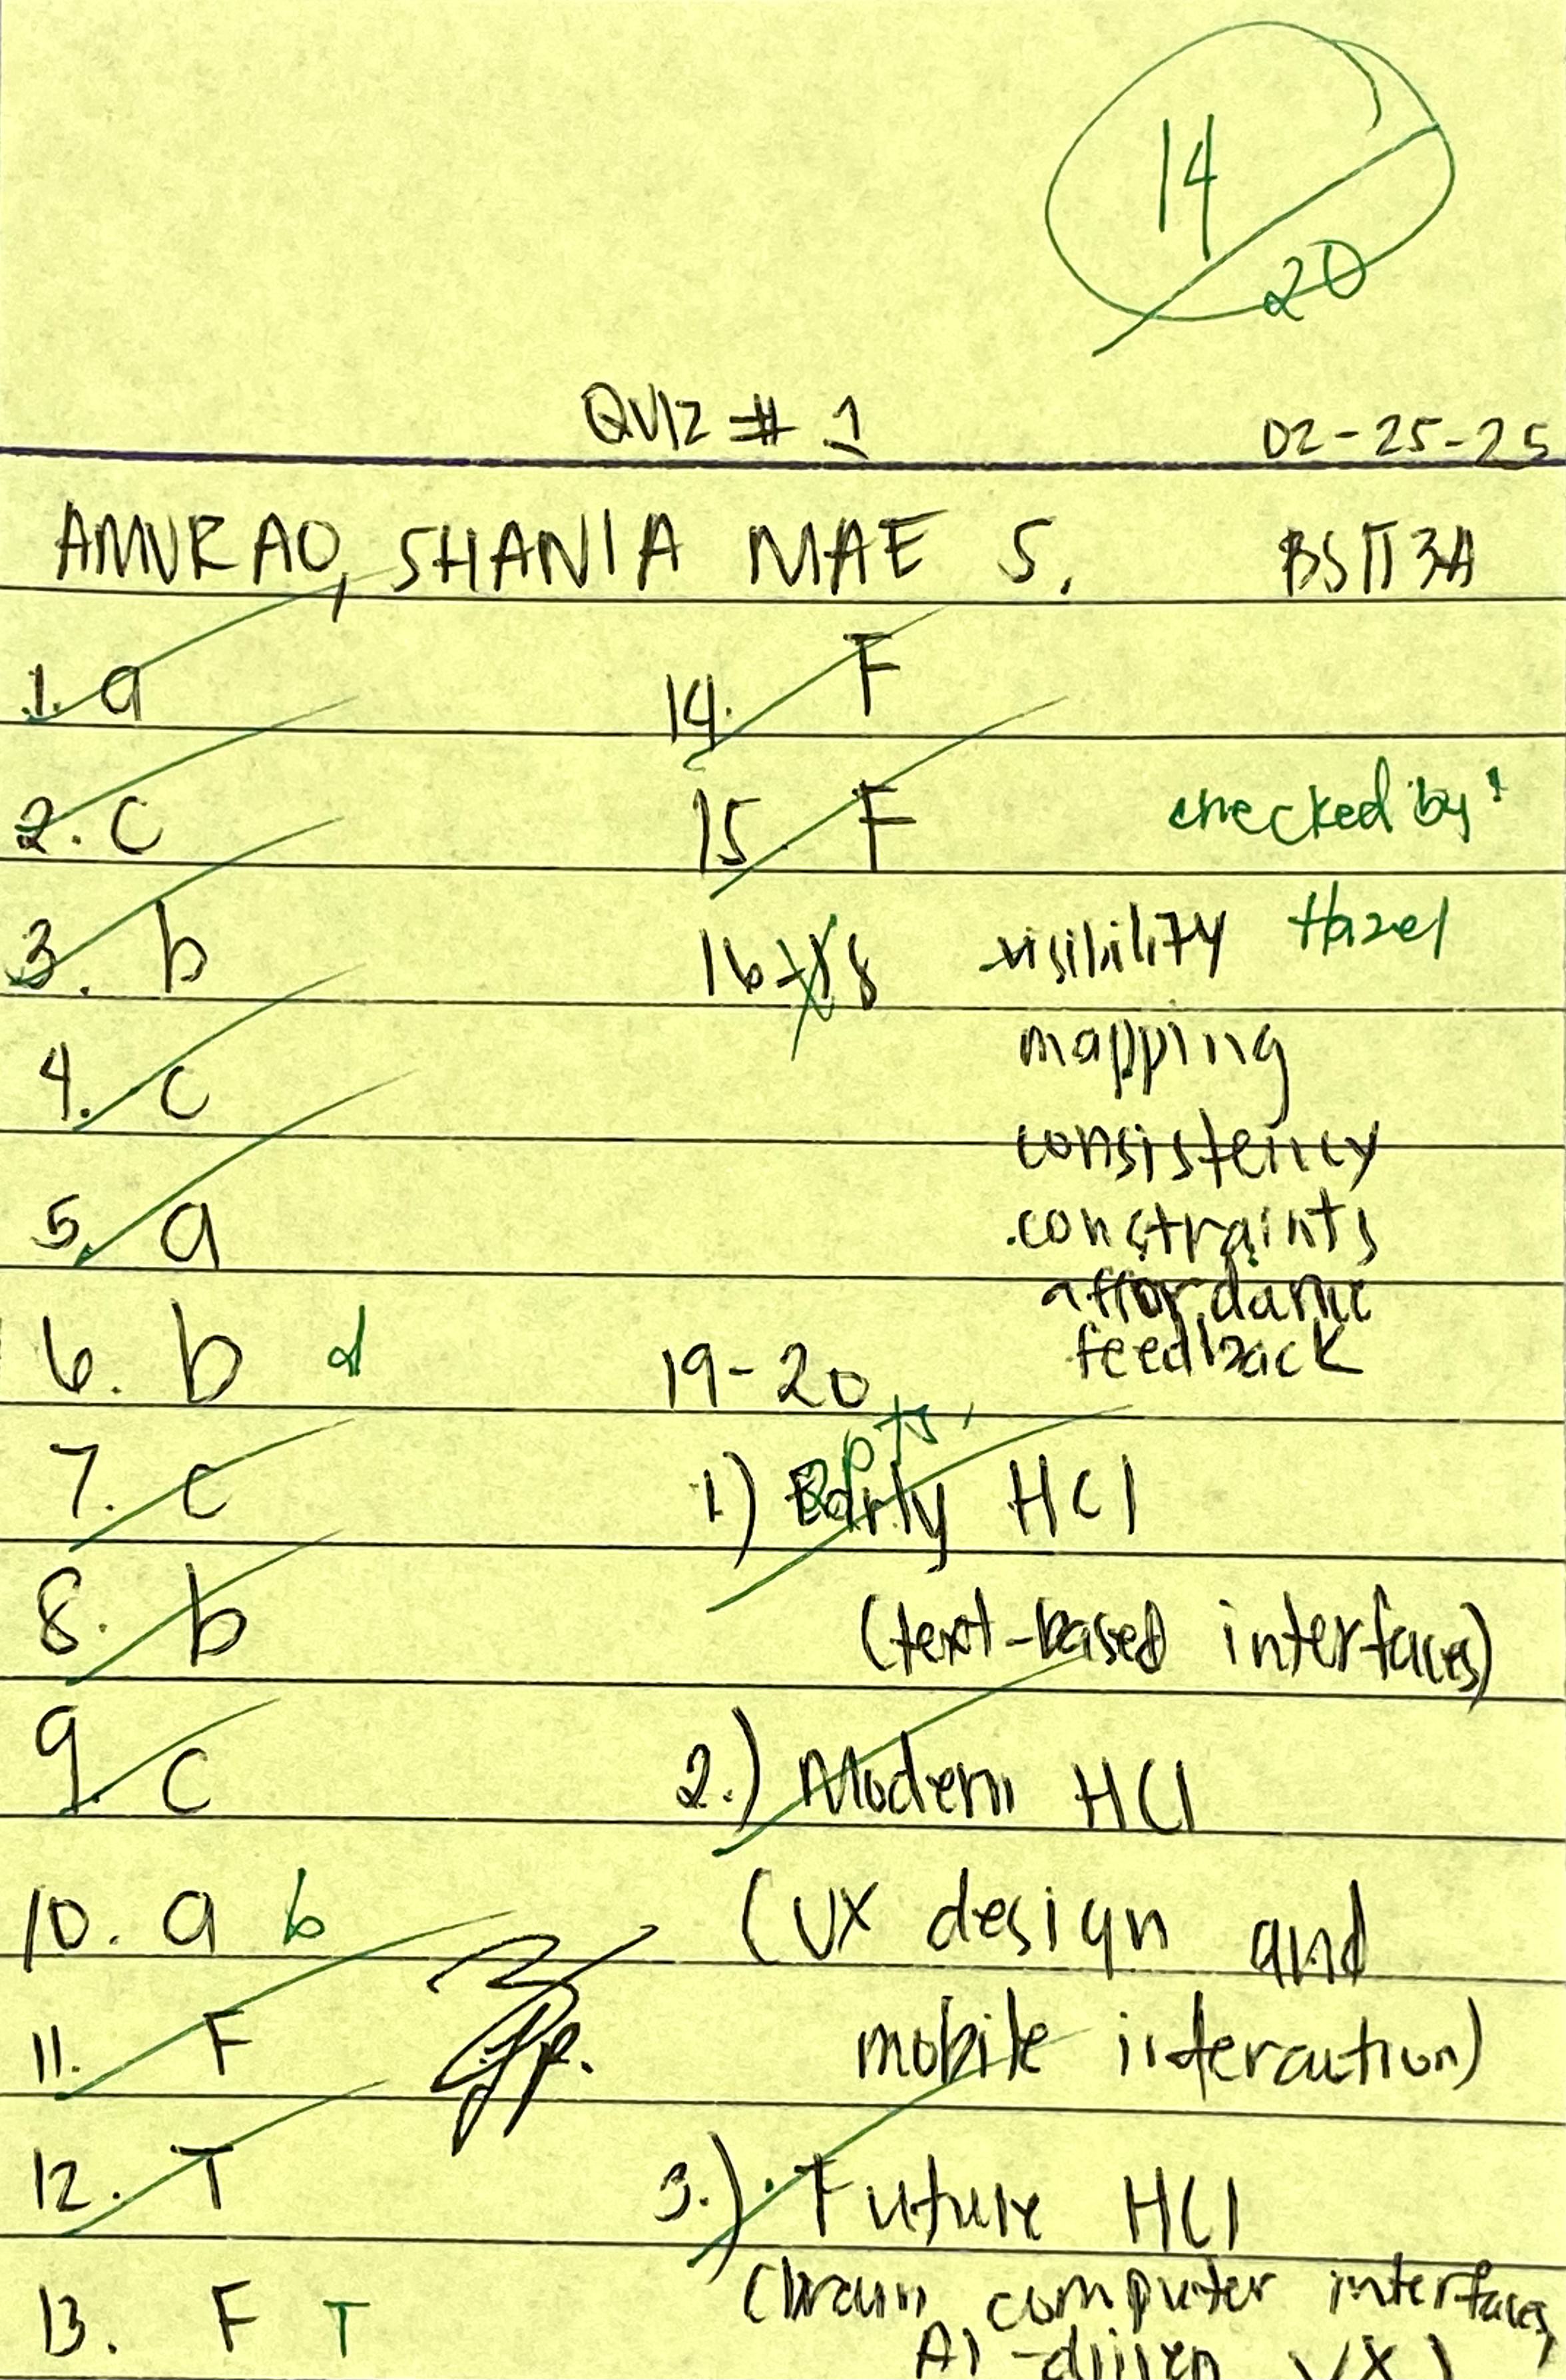 14
20
QUIZ # 1 02-25-25
AMURAO, SHANIA MAE S. BSIT3A
1. a
2. c
3. b
4. c
5. a
6. b d
7. c
8. b
9. c
10. a b
11. F
12. T
13. F T
14. F
15. F
checked by:
Hazel
16-18 visibility
mapping
consistency
constraints
affordance
feedback
19-20
2pts.
1) Early HCI
(text-based interfaces)
2.) Modern HCI
(UX design and
mobile interaction)
3.) Future HCI
(brain computer interfaces,
AI-driven UX)